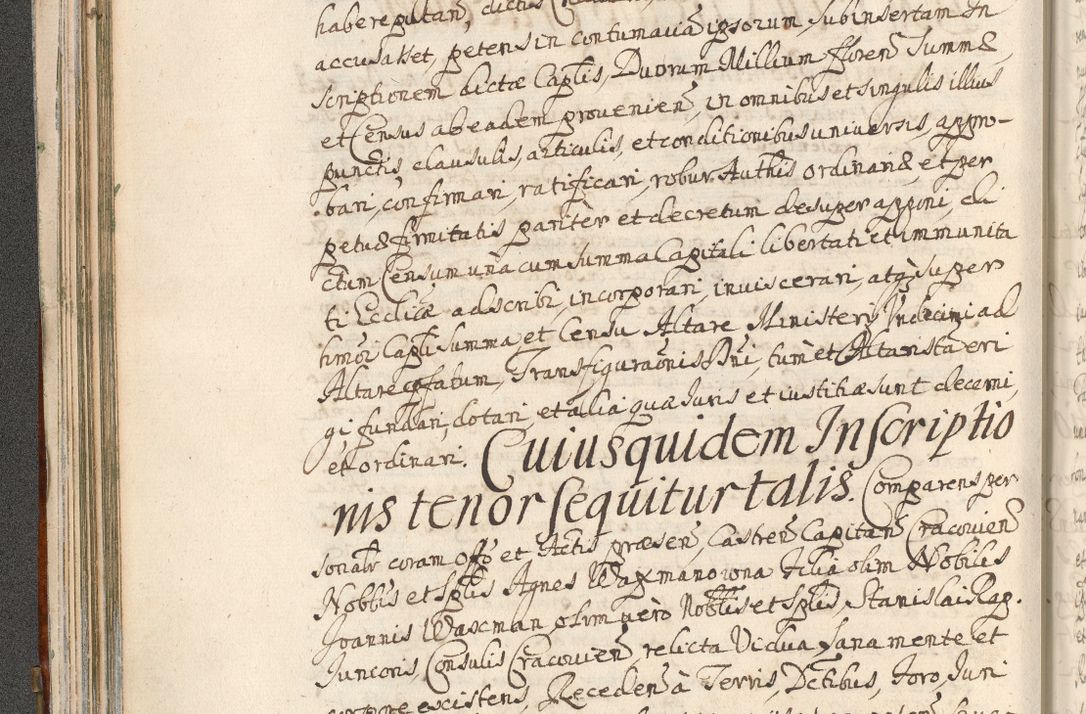 habere putan̄, dictus
accusasset, petens in contumaciā ipsorum, subinsertam In
scriptionem dictæ Caplis, Duorum Millium floren̄ Summæ,
et Census ab eadem provenien̄, in omnibus et singulis illius
punctis, clausulis, articulis, et conditionibus universis, appro-
bari, confirmari, ratificari, robur Authis ordinariæ, et per
petuæ firmitatis paritèr et decretum desuper apponi, di
ctum Censum unā cum summa Capitali libertati et immunita
ti Ecclicæ adscribi, incorporari, inviscerari, atq; super
himōi Capli Summa, et Censu Altare Ministerij Indecimi ad
Altare pfatum, Transfiguraōnis Dni, tum et Altarista eri
gi, fundari, dotari, et alia quæ Iuris et iustitiæ sunt decerni,
et ordinari. Cuius quidem Inscriptio
nis tenor sequitur talis. Comparens per
sonalr coram offo et Actis præsen̄, Castren̄ Capitan̄ Cracovien̄
Nobilis et Splis Agnes Waxmanowna filia olim Nobilis
Joannis Wascman olim verò Noblis et Splis, Stanislai Rap.
Junconis, Consulis Cracovien̄ relicta Vidua sana mente et
corpore existens, Receden̄ à Terris, Dctibus, foro, Juri